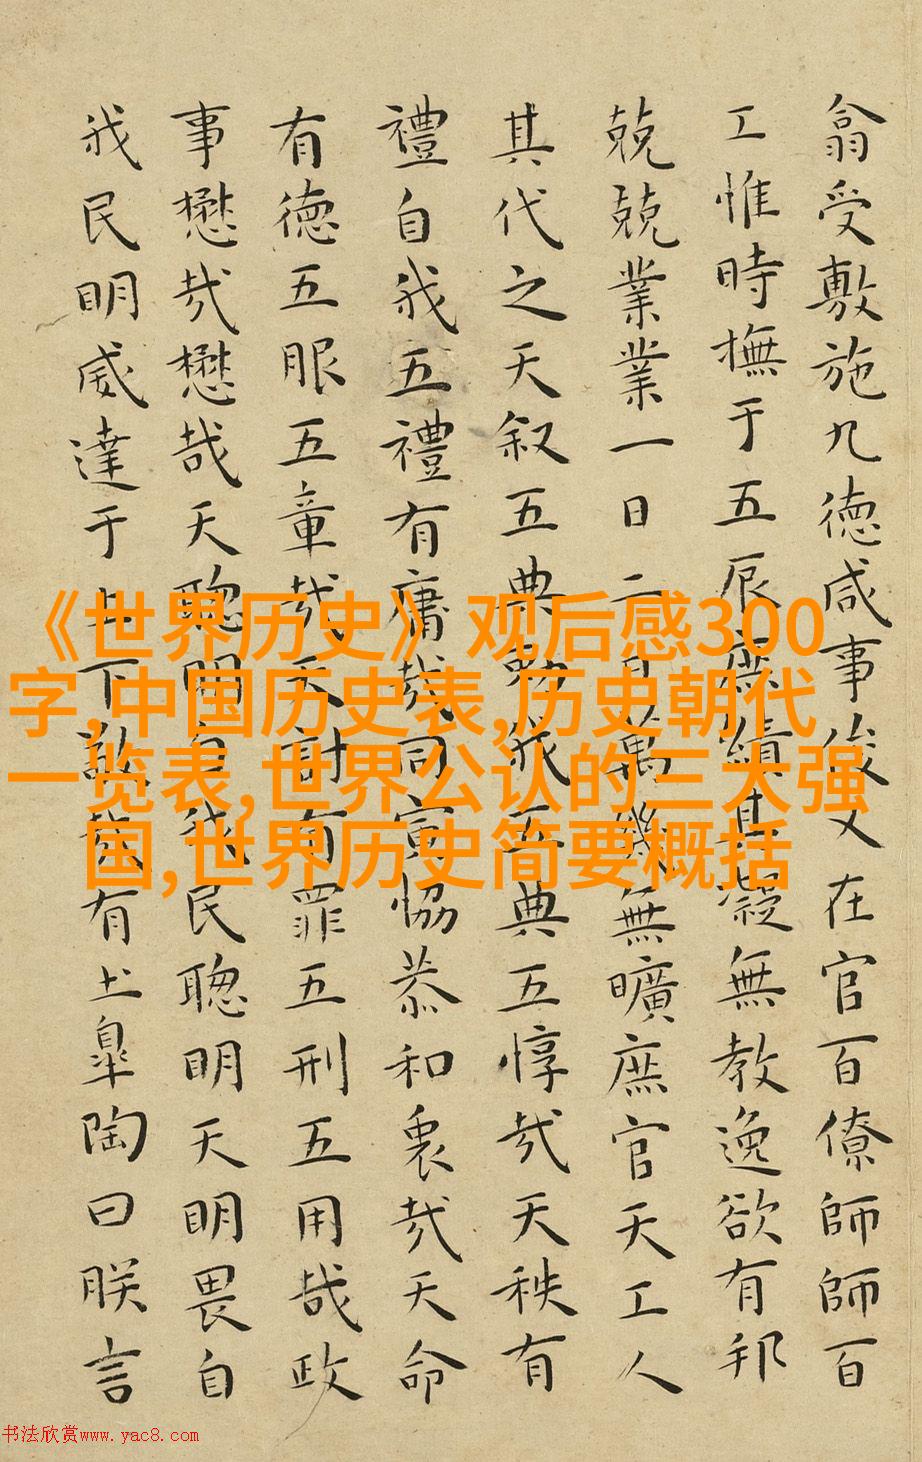 翕受敷施九德咸事俊乂在官百僚師師百
工惟時撫于五辰庶績其凝無教逸欲有邦
兢兢業業一日二日萬幾無曠庶官天工人
其代之天叙五典勑我五典五惇哉天秩有
禮自我五禮有庸哉同寅恊恭和衷哉天命
有德五服五章哉天討有罪五刑五用哉政
事懋哉懋哉天聰明自我民聦明天明畏自
我民明威達于上下敬哉有土皐陶曰朕言
《世界历史》观后感300
字,中国历史表,历史朝代
一览表,世界公认的三大强
国,世界历史简要概括
书法欣赏www.yac8.com